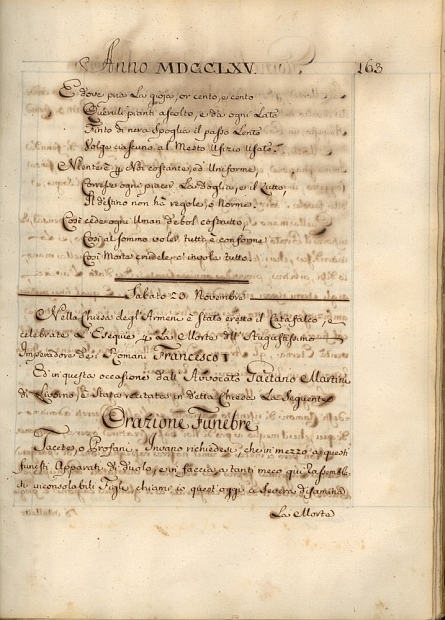 Anno MDCCLXV. 163
E dove pria La gioja, or cento, e cento
Flevili pianti ascolto, e da ogni Lato
Tinto di nera Spoglia il passo Lento
Volge ciascuno al Mesto Ufizio Usato.
Niente è p Noi costante, ed Uniforme,
Corre ogni piacer La doglia, e il Lutto,
Il destino non hà regole, o Norme.
Così cede ogni Uman debol costrutto,
Così al sommo voler tutto è conforme,
Così Morte crudele c'invola tutto.
Sabato 23 Novembre
Nella Chiesa degl'Armeni è Stato eretto il Catafalco, e
celebrate L'Esequie p La Morte dell'Augustissimo
Imperadore de Romani Francesco I
Ed in questa occasione dall'Avvocato Gaetano Martini
di Livorno è Stata recitata in detta Chiesa La Seguente
Orazione Funebre
Tacete, o Profani. Invano richiedesi, che in mezzo a questi
funesti Apparati di duolo, e in faccia a tanti meco qui Rassembra-
ti inconsolabili Figli, chiami io quest'oggi a Severa disamina
La Morte